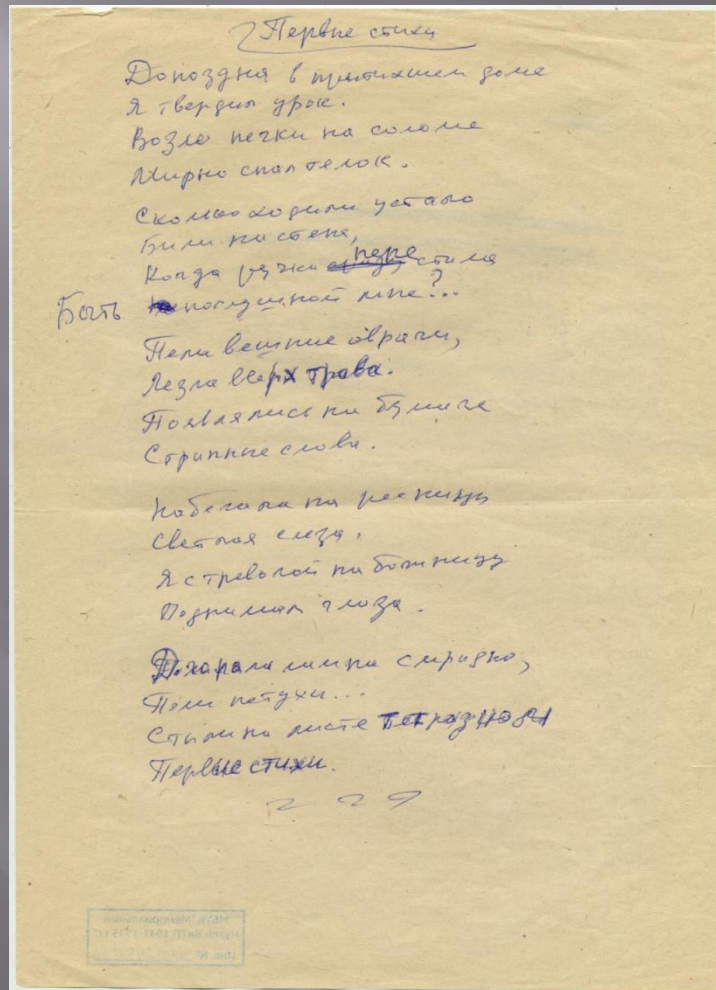 Первые стихи
Допоздна в притихшем доме
Я твердил урок.
Возле печки на соломе
Мирно спал телок.
Сколько ходили устало
Били на стене,
Когда ручка перестала
Быть послушной мне?..
Пели вешние овраги,
Лезла вверх трава.
Появлялись на бумаге
Странные слова.
Набегала на ресницы
Светлая слеза.
Я с тревогой на божницу
Поднимал глаза.
Догорала лампа смрадно,
Пели петухи...
Стыли на листе тетрадном
Первые стихи.
МБУК "Мемориальный
музей ВиТП 1941-1945 г.г."
Инв. №